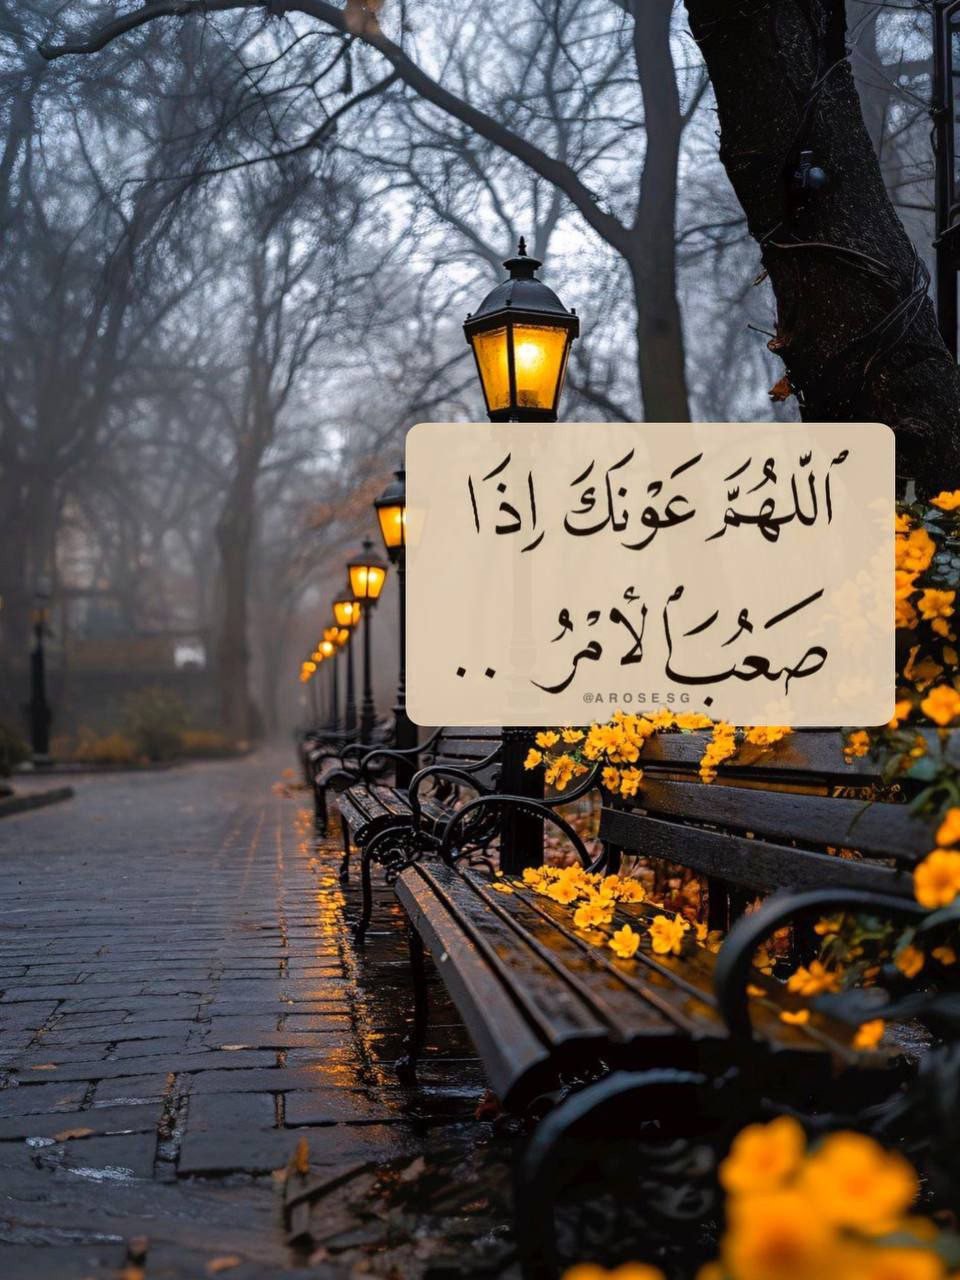 ٱللَّهُمَّ عَوْنَكَ إِذَا
صَعُبَ ٱلأَمْرُ ..
@AROSESG